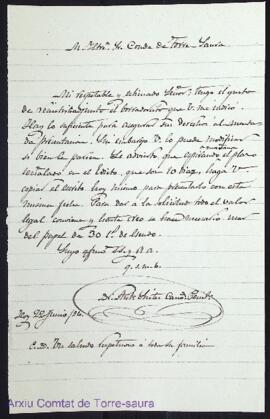 M. Iltre. Sr. Conde de Torre-Saura
Mi respetable y estimado Señor: tengo el gusto
de remitirle adjunto el borrador que V. me indicó.
Hay lo suficiente para asegurar sus derechos al
presentarse. Sin embargo V. lo puede modificar
si bien le parece. Le advierto que el plazo
señalado en el Edicto, que son 10 días, haga Vd.
copiar el escrito hoy mismo para presentarlo con esta
misma fecha. Para dar a la solicitud todo el valor
legal conviene y hasta creo se hace necesario usar
del papel de 30 cs. de Escudo.
Suyo afmo. S. S. y
q. s. m. b.
Hoy 22 Junio
P. D. Un saludo respetuoso a toda su familia
Arxiu Comtat de Torre-saura